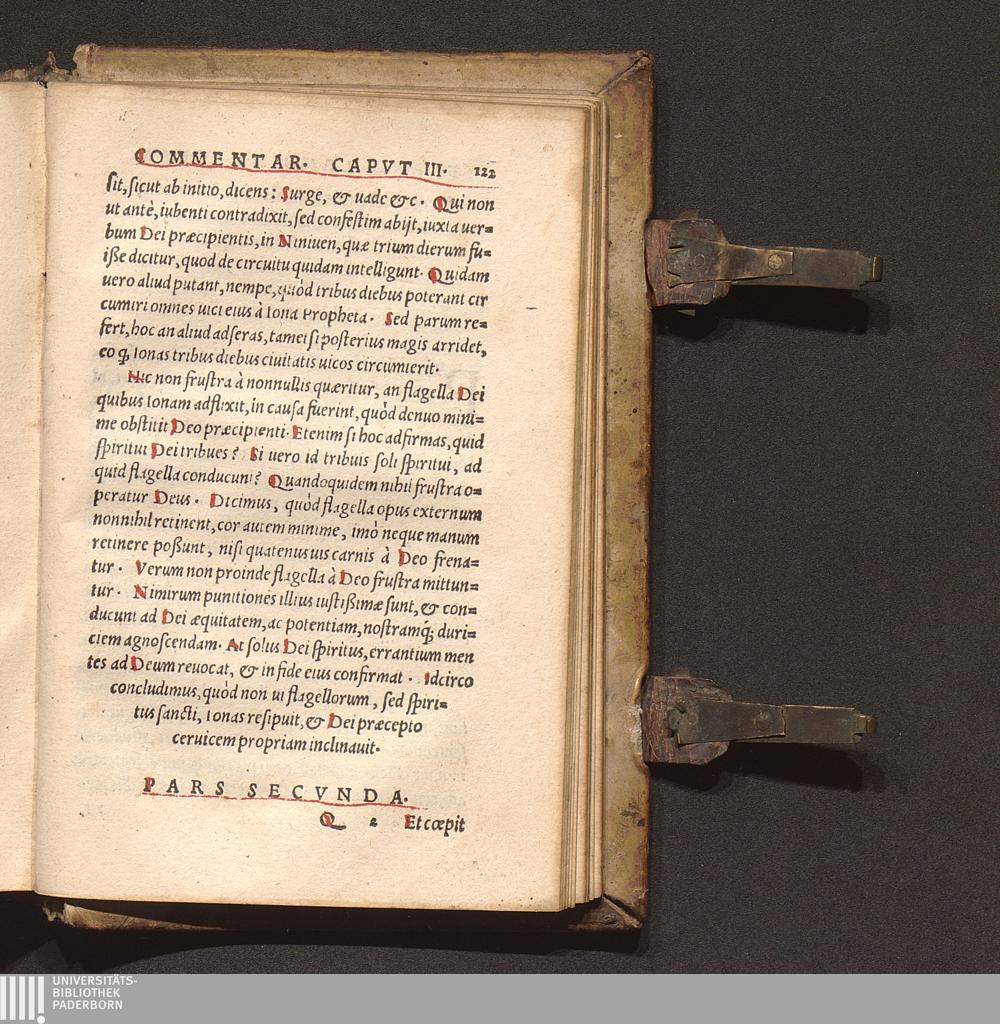 COMMENTAR. CAPVT III. 122
sit, sicut ab initio, dicens: Surge, & uade &c. Qui non
ut antè, iubenti contradixit, sed confestim abijt, iuxta uer=
bum Dei præcipientis, in Niniuen, quæ trium dierum fu=
isse dicitur, quod de circuitu quidam intelligunt. Quidam
uero aliud putant, nempe, quòd tribus diebus poterant cir
cumiri omnes uici eius à Iona Propheta. Sed parum re=
fert, hoc an aliud adseras, tametsi posterius magis arridet,
eo q; Ionas tribus diebus ciuitatis uicos circumierit.
Hic non frustra à nonnullis quæritur, an flagella Dei
quibus Ionam adflixit, in causa fuerint, quòd denuo mini=
me obstitit Deo præcipienti. Etenim si hoc adfirmas, quid
spiritui Dei tribues? Si uero id tribuis soli spiritui, ad
quid flagella conducunt? Quandoquidem nihil frustra o=
peratur Deus. Dicimus, quòd flagella opus externum
nonnihil retinent, cor autem minime, imò neque manum
retinere possunt, nisi quatenus uis carnis à Deo frena=
tur. Verum non proinde flagella à Deo frustra mittun=
tur. Nimirum punitiones illius iustissimæ sunt, & con=
ducunt ad Dei æquitatem, ac potentiam, nostramq; duri=
ciem agnoscendam. At solus Dei spiritus, errantium men
tes ad Deum reuocat, & in fide eius confirmat. Idcirco
concludimus, quòd non ui flagellorum, sed spiri=
tus sancti, Ionas resipuit, & Dei præcepto
ceruicem propriam inclinauit.
PARS SECVNDA.
Q 2 Et cœpit
UNIVERSITÄTS-
BIBLIOTHEK
PADERBORN